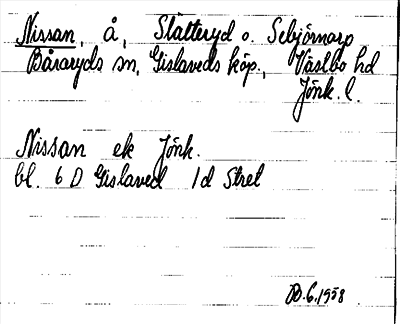 Nissan, å, Slätteryd o. Sebjörnarp
Båraryds sn, Gislaveds köp., Västbo hd
Jönk. l.
Nissan ek Jönk.
bl. 6 D Gislaved 1d Stret
B.6.1958